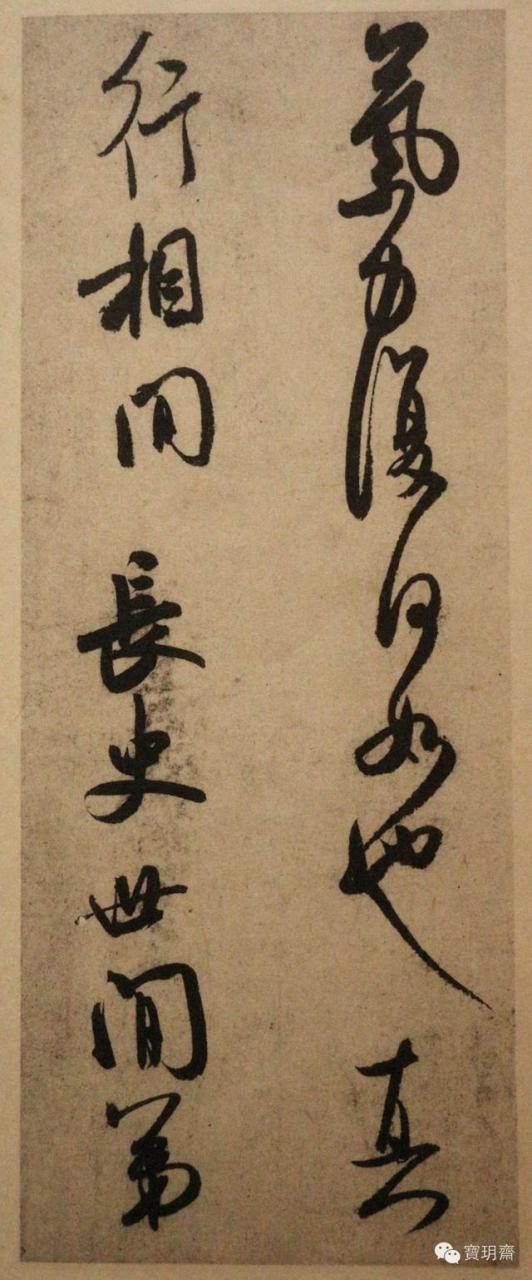 氣力復何如也真
行相間長史世間第
寶玥齋